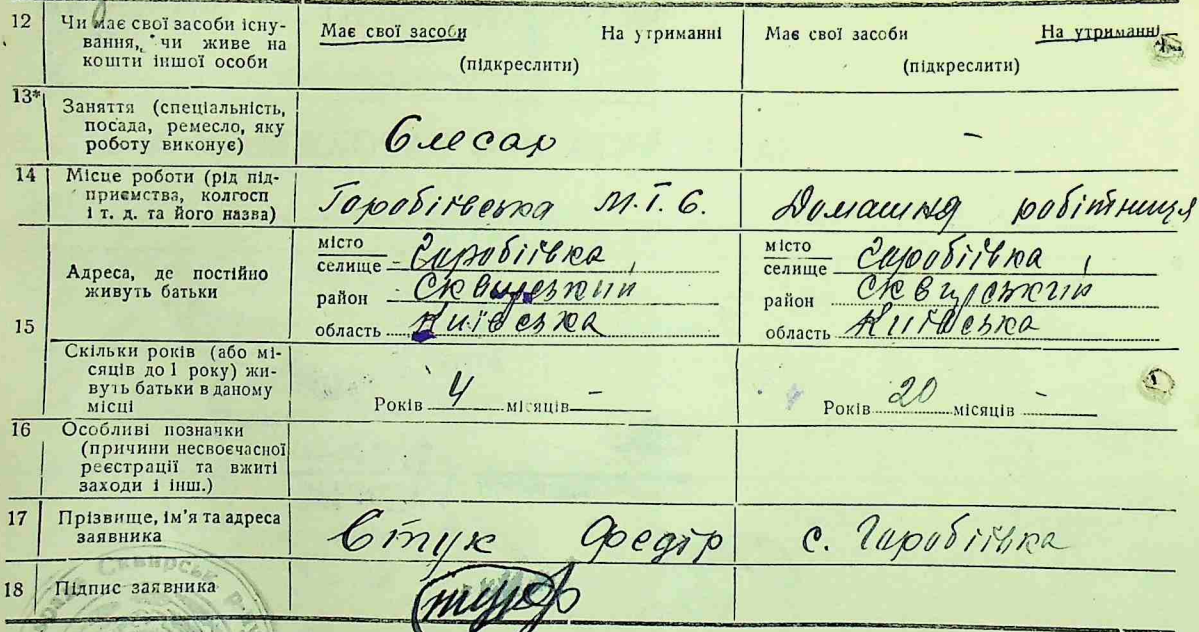 12 Чи має свої засоби існу- Має свої засоби На утриманні Має свої засоби На утриманні
вання, чи живе на
кошти іншої особи (підкреслити) (підкреслити)
13* Заняття (спеціальність,
посада, ремесло, яку
роботу виконує) Слесар –
14 Місце роботи (рід під-
приємства, колгосп
і т. д. та його назва) Горобіївська М.Т.С. Домашня робітниця
Адреса, де постійно
живуть батьки
місто місто
селище Горобіївка селище Горобіївка
район Сквирський район Сквирський
15 область Київська область Київська
Скільки років (або мі-
сяців до 1 року) жи-
вуть батьки в даному
місці Років 4 місяців – Років 20 місяців –
16 Особливі позначки
(причини несвоєчасної
реєстрації та вжиті
заходи і інш.)
17 Прізвище, ім'я та адреса
заявника Стук Федір с. Горобіївка
18 Підпис заявника